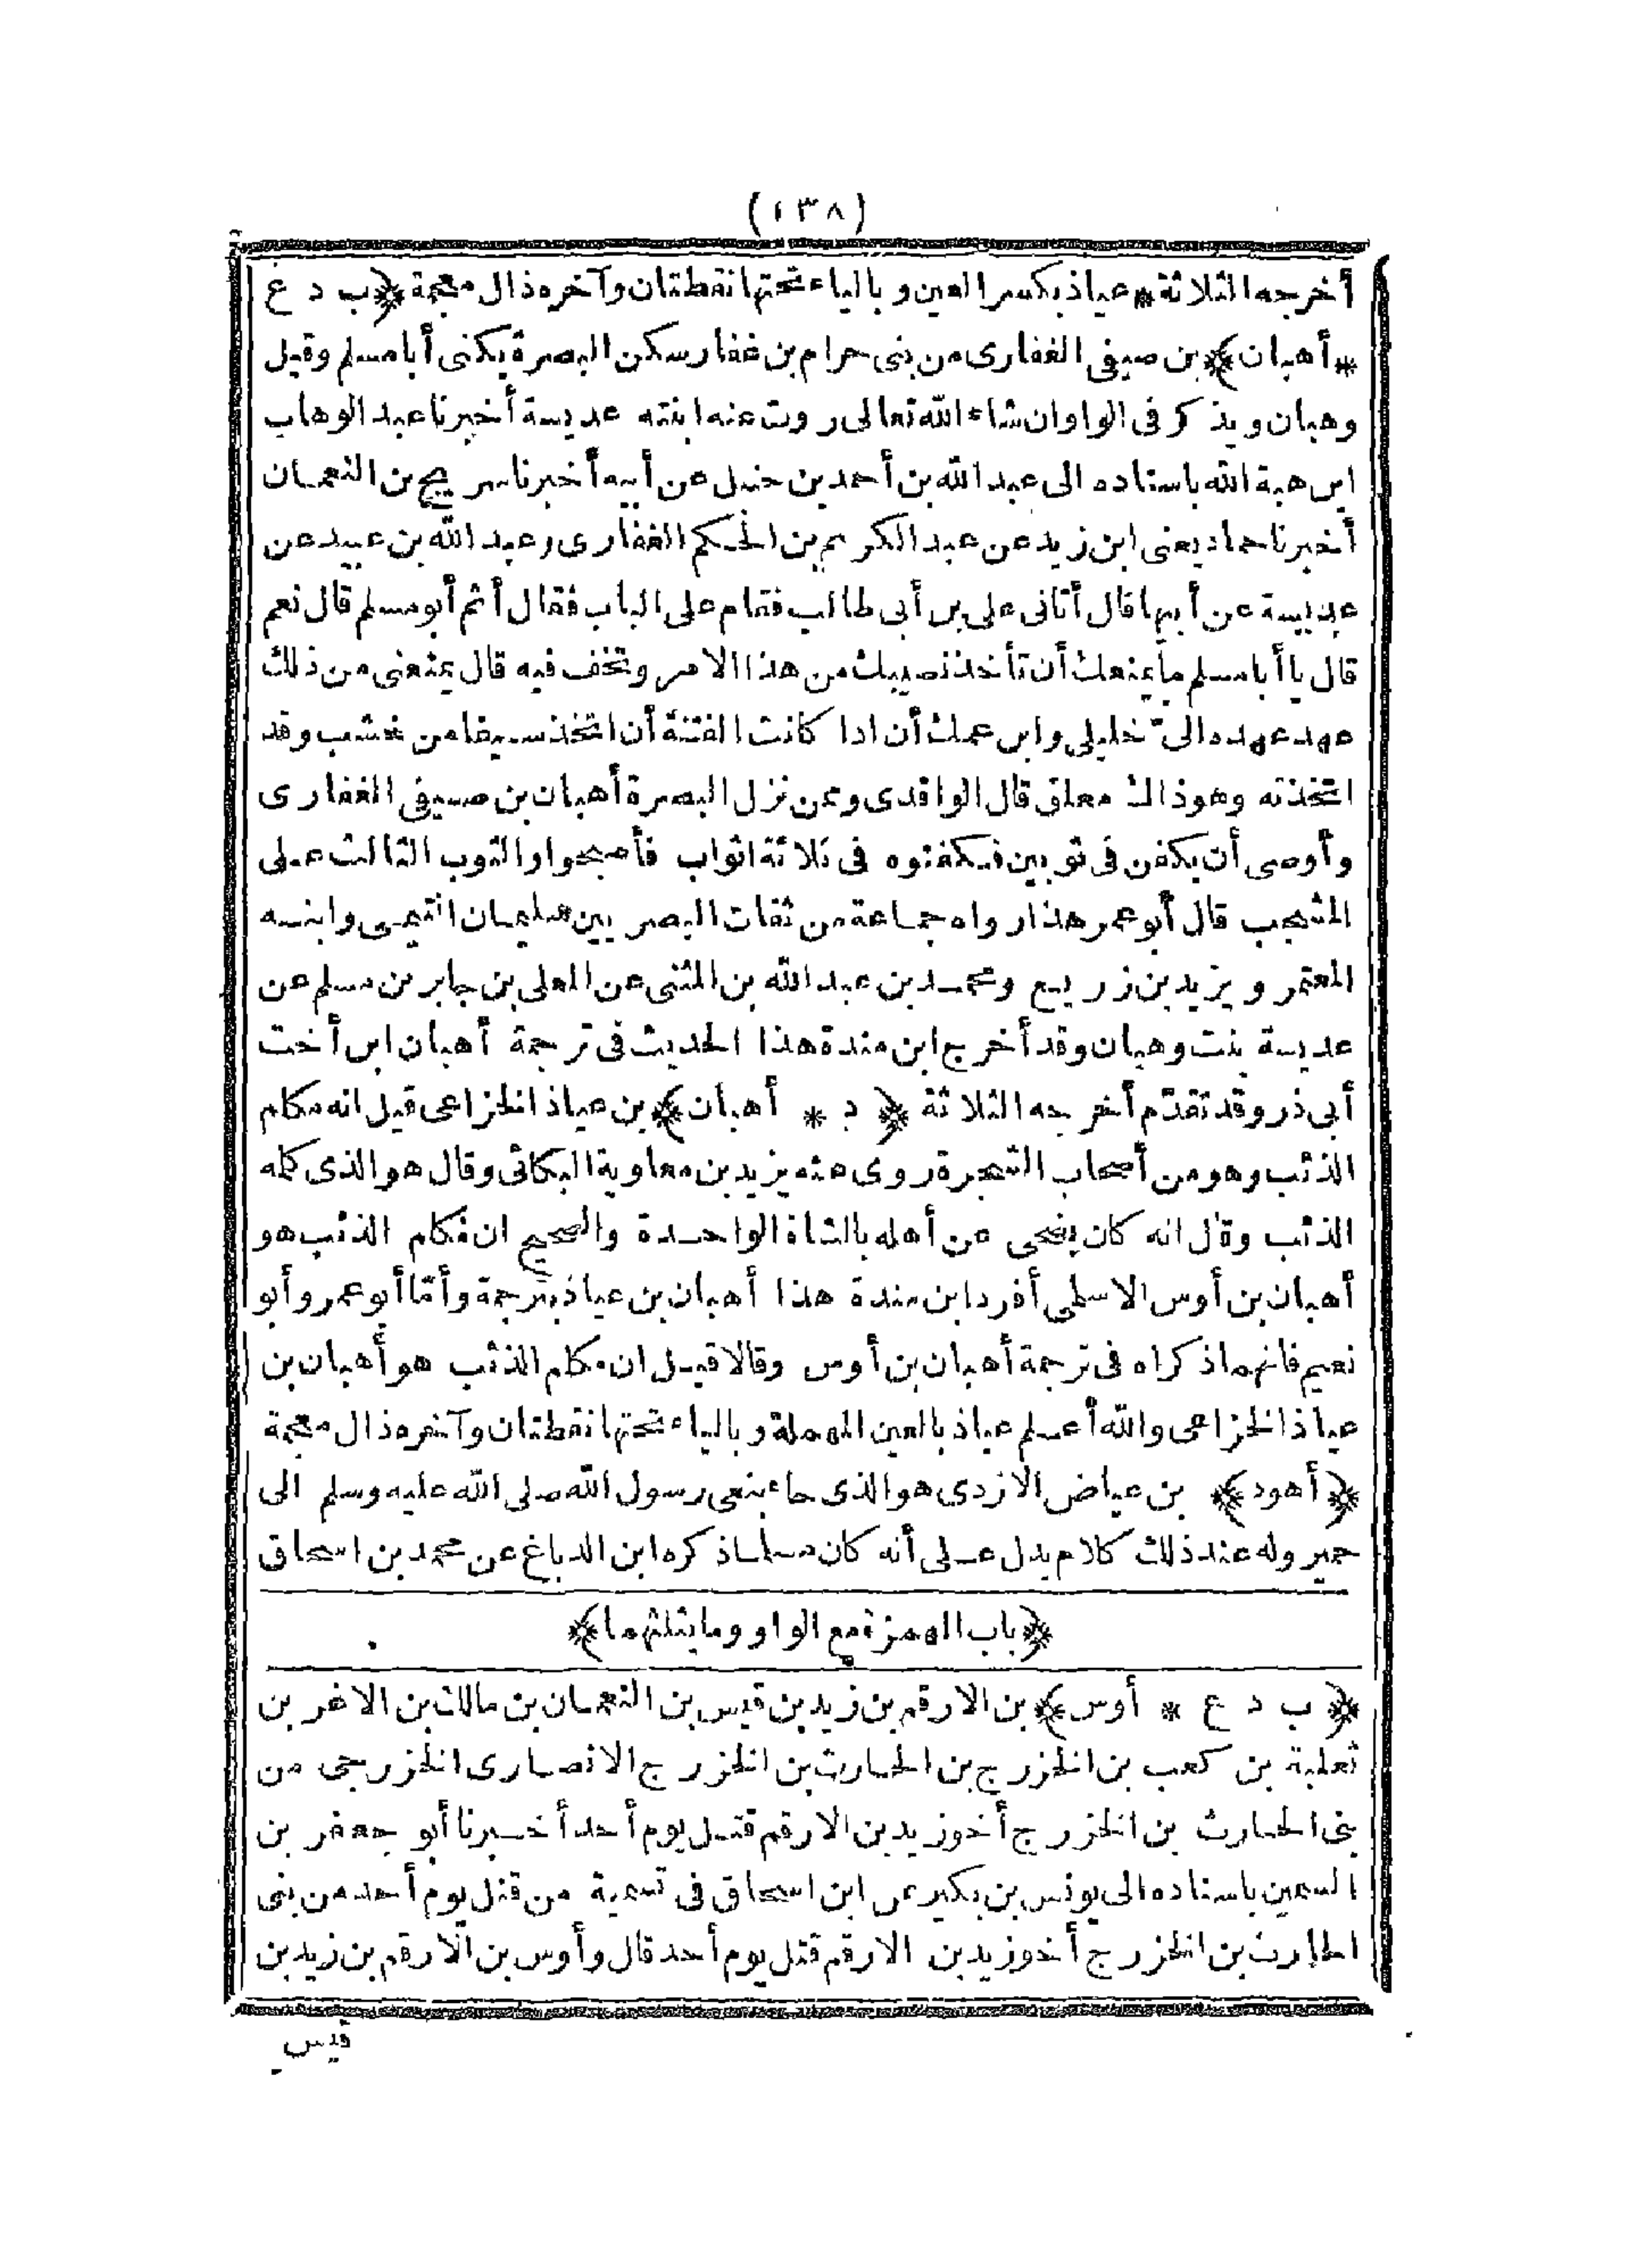 (١٣٨)
أخرجه الثلاثة * عياذ بكسر العين و بالياء تحتها نقطتان وآخره ذال معجمة ﴿ب د ع
* أهبان﴾ بن صيفى الغفارى من بنى حرام بن غفار سكن البصرة يكنى أبا مسلم وقيل
وهبان ويذكر فى الواو ان شاء الله تعالى روت عنه ابنته عديسة أخبرنا عبد الوهاب
ابن هبة الله باسناده الى عبد الله بن أحمد بن حنبل عن أبيه أخبرنا سريج بن النعمان
أخبرنا حماد يعنى ابن زيد عن عبد الكريم بن الحكم الغفارى وعبد الله بن عبيد عن
عديسة عن أبيها قال أتانى على بن أبى طالب فقام على الباب فقال أثم أبو مسلم قال نعم
قال يا أبا مسلم ما يمنعك أن تأخذ نصيبك من هذا الامر وتخف فيه قال يمنعنى من ذلك
عهد عهده الىّ خليلى وابن عمك أن اذا كانت الفتنة أن اتخذ سيفا من خشب وقد
اتخذته وهو ذاك معلق قال الواقدى وممن نزل البصرة أهبان بن صيفى الغفارى
وأوصى أن يكفن فى ثوبين فكفنوه فى ثلاثة اثواب فأصبحوا والثوب الثالث على
المشجب قال أبو عمر هذا رواه جماعة من ثقات البصريين سليمان التيمى وابنه
المعتمر ويزيد بن زريع ومحمد بن عبد الله بن المثنى عن المعلى بن جابر بن مسلم عن
عديسة بنت وهبان وقد أخرج ابن مندة هذا الحديث فى ترجمة أهبان ابن أخت
أبى ذر وقد تقدّم أخرجه الثلاثة ﴿ د * أهبان﴾ بن عياذ الخزاعى قيل انه مكلم
الذئب وهو من أصحاب الشجرة روى عنه يزيد بن معاوية البكائى وقال هو الذى كله
الذئب وقال انه كان يضحى عن أهله بالشاة الواحدة والصحيح ان مكلم الذئب هو
أهبان بن أوس الاسلمى أفرد ابن مندة هذا أهبان بن عياذ بترجمة وأمّا أبو عمر وأبو
نعيم فانهما ذكراه فى ترجمة أهبان بن أوس وقالا قيل ان مكلم الذئب هو أهبان بن
عياذ الخزاعى والله أعلم عياذ بالعين المهملة و بالياء تحتها نقطتان وآخره ذال معجمة
﴿أهود﴾ بن عياض الازدى هو الذى جاء بنعى رسول الله صلى الله عليه وسلم الى
حمير وله عند ذلك كلام يدل على أنه كان مسلما ذكره ابن الدباغ عن محمد بن اسحاق
﴿باب الهمزة مع الواو وما يثلثهما﴾
﴿ ب د ع * أوس﴾ بن الارقم بن زيد بن قيس بن النعمان بن مالك بن الاغر بن
ثعلبة بن كعب بن الخزرج بن الحارث بن الخزرج الانصارى الخزرجى من
بنى الحارث بن الخزرج أخو زيد بن الارقم قتل يوم أحد أخبرنا أبو جعفر بن
السمين باسناده الى يونس بن بكير عن ابن اسحاق فى تسمية من قتل يوم أحد من بنى
الحارث بن الخزرج أخو زيد بن الارقم قتل يوم أحد قال وأوس بن الارقم بن زيد بن
قيس